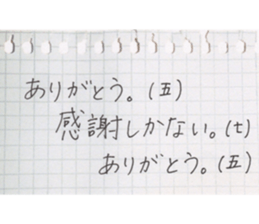 ありがとう。(五)
感謝しかない。(七)
ありがとう。(五)